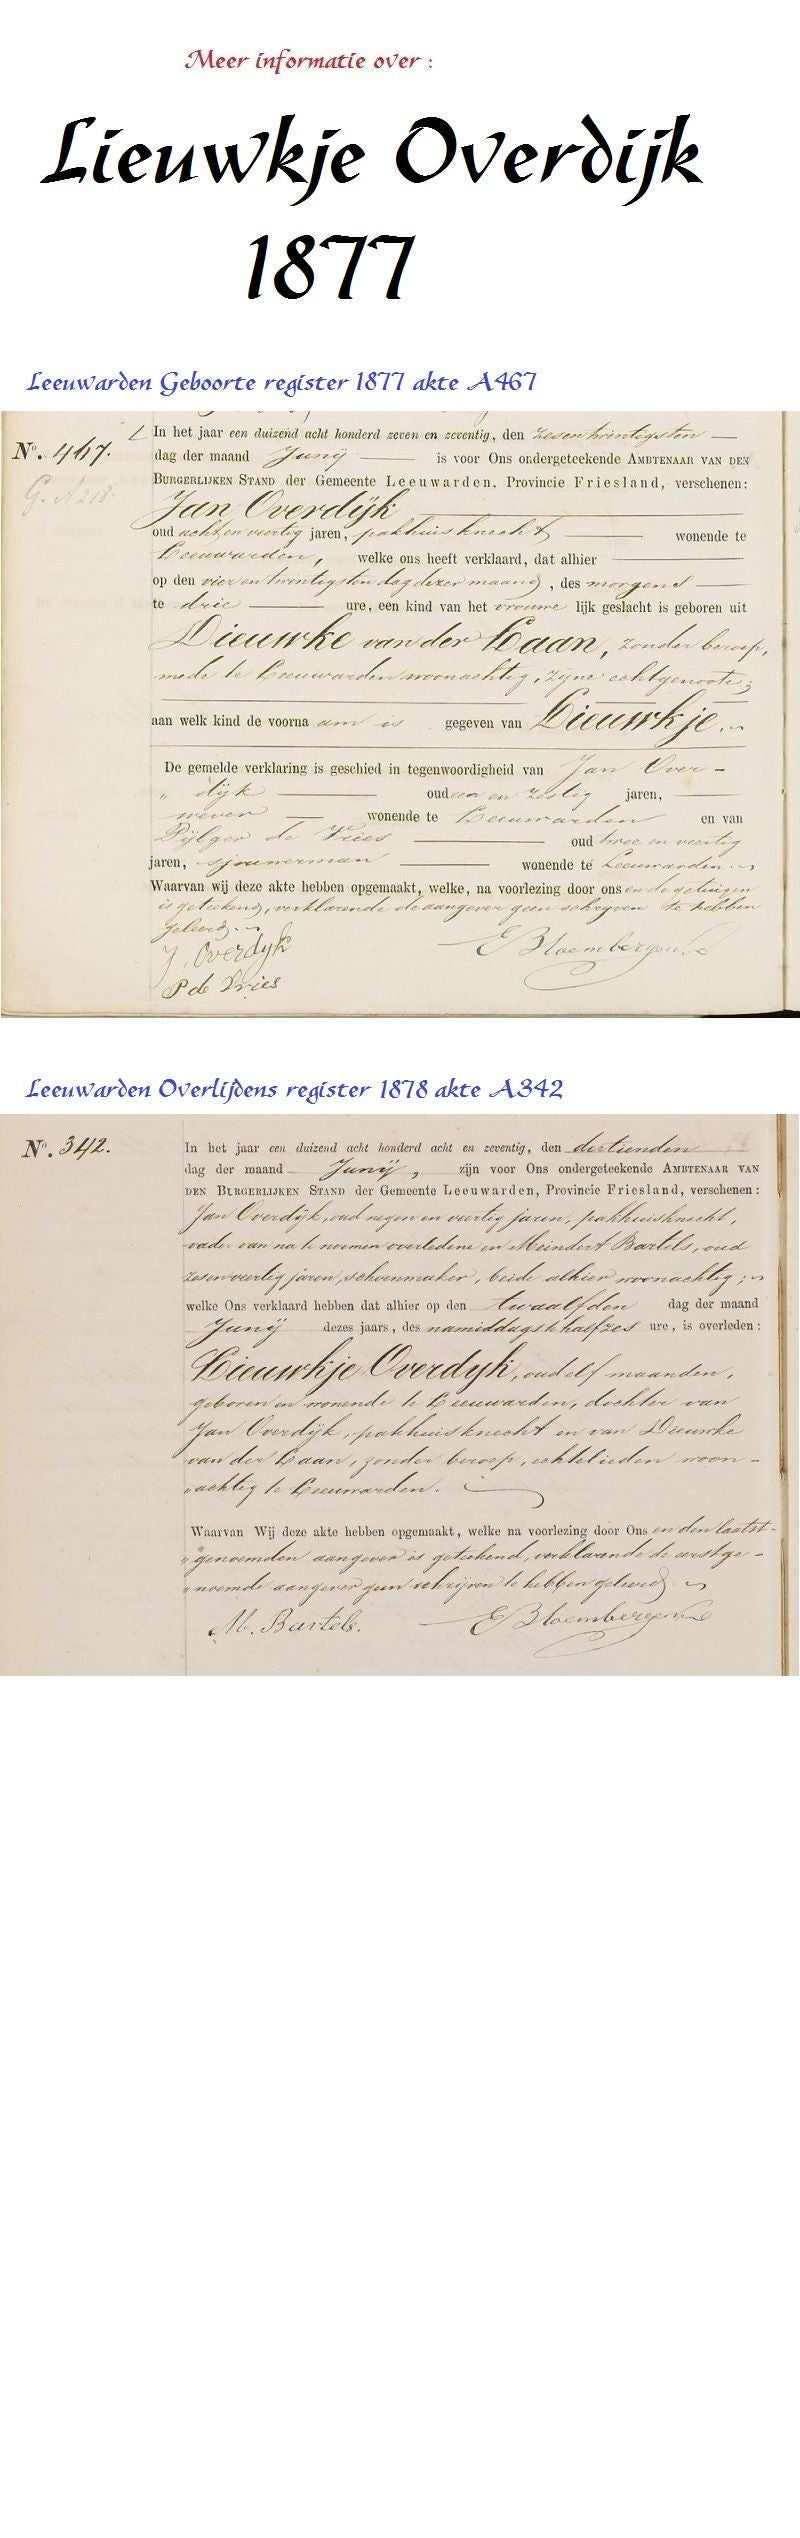 Meer informatie over :
Lieuwkje Overdijk
1877
Leeuwarden Geboorte register 1877 akte A467
No. 467.
G. A 218.
In het jaar een duizend acht honderd zeven en zeventig, den zesentwintigsten
dag der maand Junij is voor Ons ondergeteekende AMBTENAAR VAN DEN
BURGERLIJKEN STAND der Gemeente Leeuwarden, Provincie Friesland, verschenen:
Jan Overdijk
oud achtenveertig jaren, pakhuisknecht wonende te
Leeuwarden, welke ons heeft verklaard, dat alhier
op den vierentwintigsten dag dezer maand, des morgens
te drie ure, een kind van het vrouwelijk geslacht is geboren uit
Dieuwke van der Laan, zonder beroep,
mede te Leeuwarden woonachtig, zijne echtgenoote;
aan welk kind de voornaam is gegeven van Lieuwkje.
De gemelde verklaring is geschied in tegenwoordigheid van Jan Over-
" dijk oud een en zestig jaren,
wever wonende te Leeuwarden en van
Pijlger de Vries oud twee en veertig
jaren, sjouwerman wonende te Leeuwarden.
Waarvan wij deze akte hebben opgemaakt, welke, na voorlezing door ons en de getuigen
is geteekend, verklarende de aangever geen schrijven te hebben
geleerd.
J. Overdyk E Bloembergen
P de Vries
Leeuwarden Overlijdens register 1878 akte A342
No. 342.
In het jaar een duizend acht honderd acht en zeventig, den dertienden
dag der maand Junij, zijn voor Ons ondergeteekende AMBTENAAR VAN
DEN BURGERLIJKEN STAND der Gemeente Leeuwarden, Provincie Friesland, verschenen:
Jan Overdijk, oud negen en veertig jaren, pakhuisknecht,
vader van na te noemen overledene en Meindert Bartels, oud
zesenveertig jaren, schoenmaker, beide alhier woonachtig;
welke Ons verklaard hebben dat alhier op den twaalfden dag der maand
Junij dezes jaars, des namiddags te halfzes ure, is overleden:
Lieuwkje Overdyk, oud elf maanden,
geboren en wonende te Leeuwarden, dochter van
Jan Overdijk, pakhuisknecht en van Dieuwke
van der Laan, zonder beroep, echtelieden woon-
"achtig te Leeuwarden.
Waarvan Wij deze akte hebben opgemaakt, welke na voorlezing door Ons en den laatst-
"genoemden aangever is geteekend, verklarende de eerstge-
"noemde aangever geen schrijven te hebben geleerd.
M. Bartels. E Bloembergen